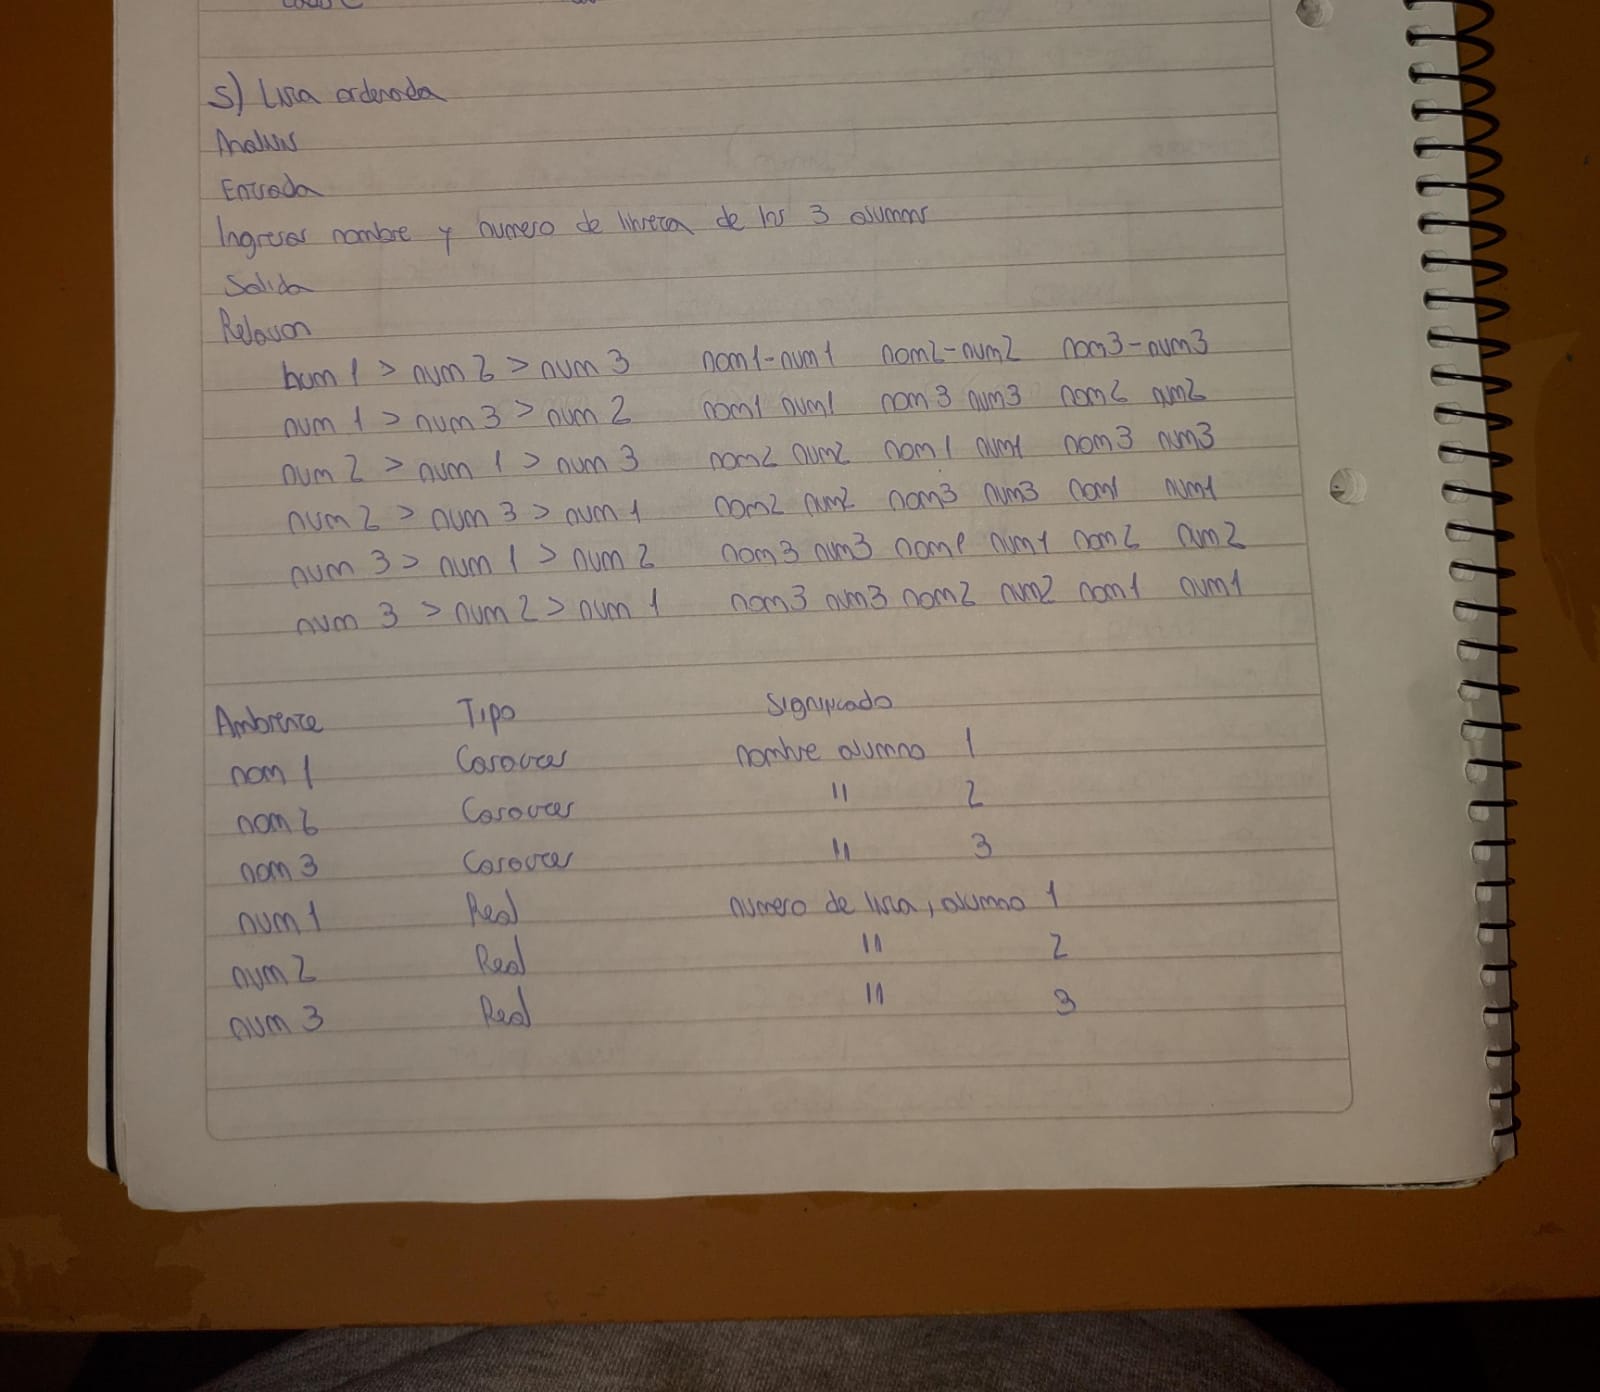 5) Lista ordenada
Analisis
Entrada
Ingresar nombre y numero de libreta de los 3 alumnos
Salida
Relacion
num 1 > num 2 > num 3 nom1-num1 nom2-num2 nom3-num3
num 1 > num 3 > num 2 nom1 num1 nom 3 num3 nom2 num2
num 2 > num 1 > num 3 nom2 num2 nom 1 num1 nom 3 num3
num 2 > num 3 > num 1 nom2 num2 nom3 num3 nom1 num1
num 3 > num 1 > num 2 nom 3 num3 nom1 num1 nom 2 num 2
num 3 > num 2 > num 1 nom3 num3 nom2 num2 nom 1 num1
Ambiente Tipo Significado
nom 1 Caracter nombre alumno 1
nom 2 Caracter " 2
nom 3 Caracter " 3
num 1 Real numero de lista, alumno 1
num 2 Real " 2
num 3 Real " 3